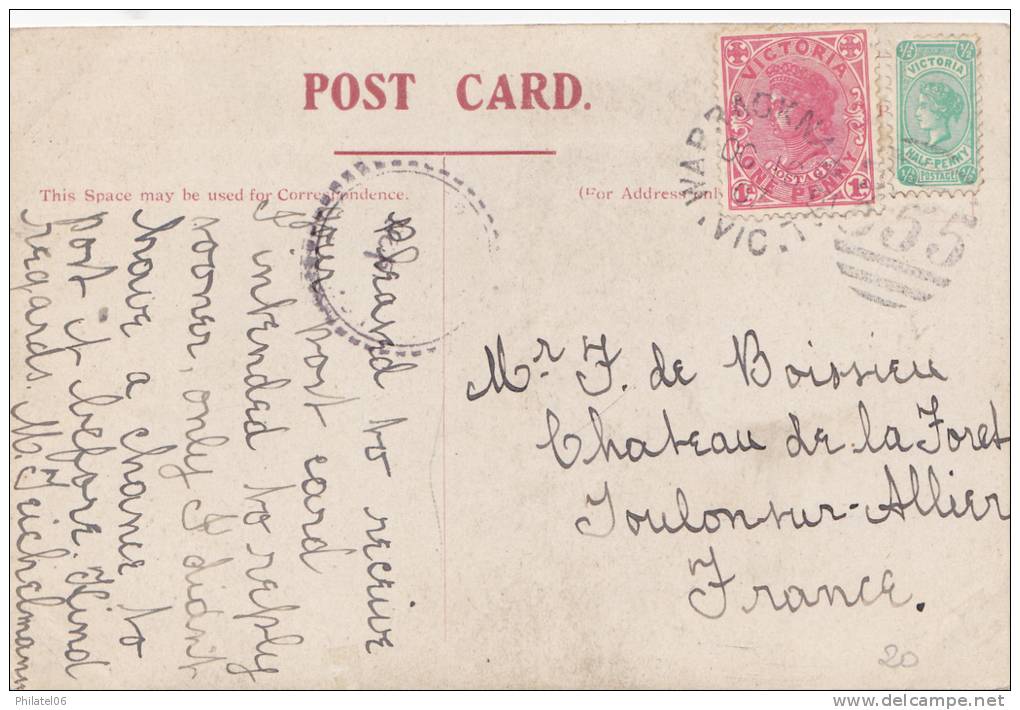 POST CARD.
This Space may be used for Correspondence.
(For Address only
VICTORIA
POSTAGE
ONE PENNY
1d 1d
½ ½
VICTORIA
HALF-PENNY
½ POSTAGE ½
VIC.
555
Pleased to receive
your post card
I intended to reply
sooner, only I didnt
have a chance to
post it before. Kind
regards. M. Teichelmann
Mr. F. de Boissieu
Chateau de la Foret
Toulon sur-Allier
France.
20
Philatel06
delcampe.net